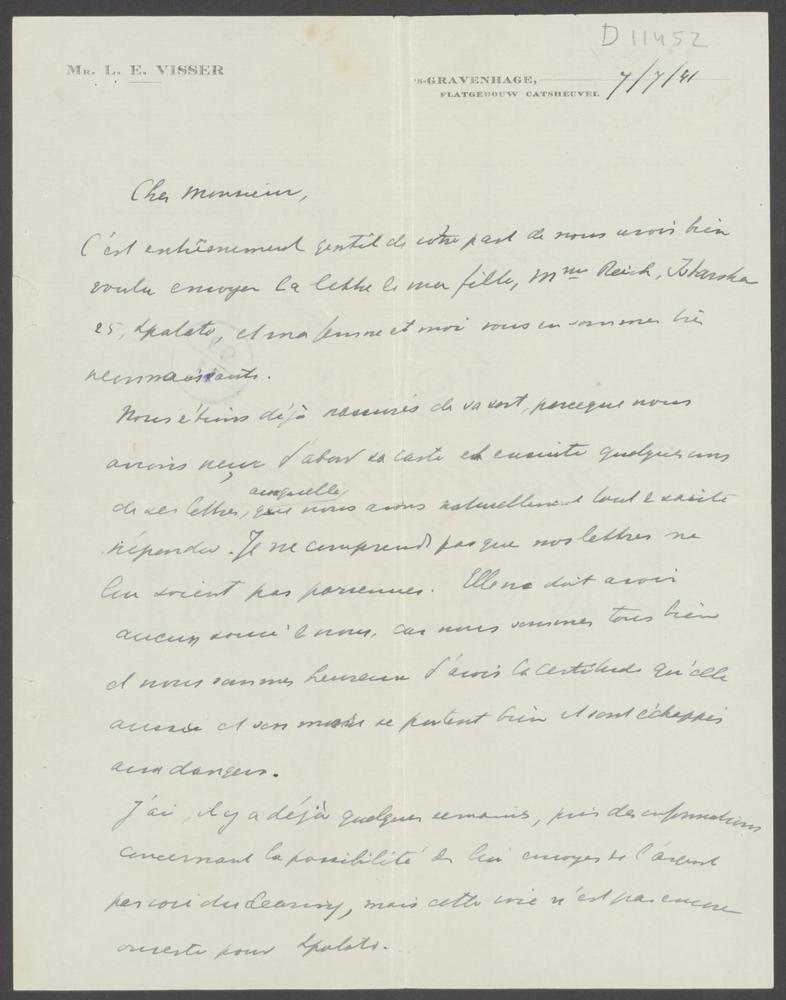 D 11452
MR. L. E. VISSER
'S-GRAVENHAGE, 7/7/41
FLATGEBOUW CATSHEUVEL
Cher Monsieur,
C'est extrêmement gentil de votre part de nous avoir bien
voulu envoyer la lettre de ma fille, Mme Reich,
25, Spalato, et ma femme et moi vous en sommes très
reconnaissants.
Nous étions déjà rassurés de sa sort, parceque nous
avons reçu d'abord sa carte et ensuite quelques uns
de ses lettres, auxquelles nous avons naturellement tout de suite
répondu. Je ne comprends pas que nos lettres ne
lui soient pas parvenues. Elle ne doit avoir
aucun souci de nous, car nous sommes tous bien
et nous sommes heureux d'avoir la certitude qu'elle
aussi et son mari se portent bien et sont échappés
aux dangers.
J'ai, il y a déjà quelques semaines, pris des informations
concernant la possibilité de lui envoyer de l'argent
par voie du Clearing, mais cette voie n'est pas encore
ouverte pour Spalato.